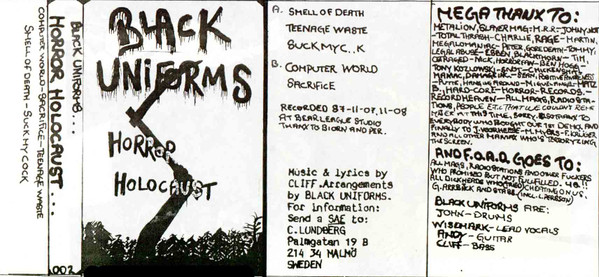 BLACK UNIFORMS...
HORROR HOLOCAUST...
COMPUTER WORLD-SACRIFICE-TEENAGE WASTE
SMELL OF DEATH-SUCK MY COCK
002
BLACK
UNIFORMS
HORROR
HOLOCAUST
A. SMELL OF DEATH
TEENAGE WASTE
SUCK MY C..K
B. COMPUTER WORLD
SACRIFICE
RECORDED 87-11-07, 11-08
AT BEARLEAGUE STUDIO
THANX TO BIORN AND PER.
Music & lyrics by
CLIFF.Arrangements
by BLACK UNIFORMS.
For information:
Send a SAE to:
C.LUNDBERG
Palmgatan 19 B
214 34 MALMÖ
SWEDEN
MEGA THANX TO:
METALION, SLAYER MAG, M.R.R.- JOHNY
-TOTAL THRASH-CHARLIE, RAGE-MARTIN,
MEGALOMANIAC-PETER, GORE DEATH-TOMMY,
LEGAL ABUSE-EBBEN, BLACKTHORN-TIM,
OUTRAGED-NICK,
TONY KOZLOWSKY-
MANIAC,
HARD CORE HORROR RECORDS-
RECORD HEAVEN-ALL MAGS, RADIO STA-
TIONS, PEOPLE ETC THAT WE COULDN'T
THIS TIME, SORRY.
EVERYBODY WHO BOUGHT OUR 1ST DEMO. AND
FINALLY TO J. VOORHESE-M. MYERS-F. KRUGER
AND ALL OTHER MANIAX WHO'S
THE SCREEN.
AND F.O.A.D. GOES TO:
ALL MAGS, RADIO STATIONS AND OTHER FUCKERS
WHO PROMISED BUT NOT FULLFILLED. 4E!!
ALL DICKHEADS WHO CHEATING ON US.
BLACK UNIFORMS ARE:
JOHN-DRUMS
WISEMARK-LEAD VOCALS
ANDY-GUITAR
CLIFF-BASS